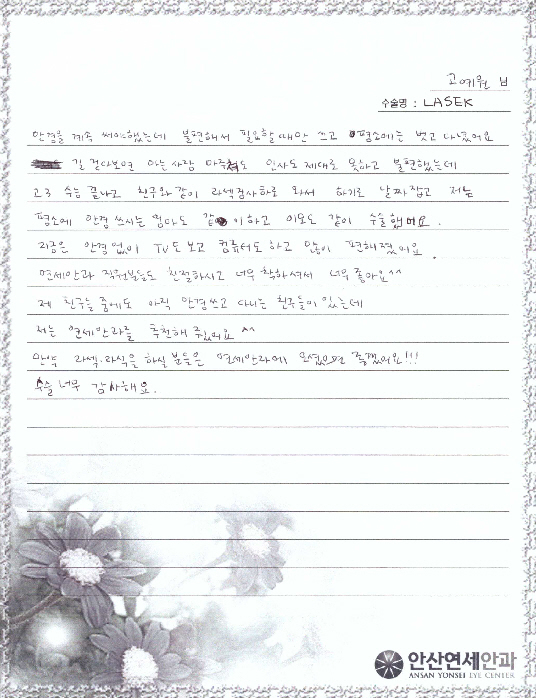 고예원 님
수술명 : LASEK
안경을 계속 써야했는데 불편해서 필요할때만 쓰고 평소에는 벗고 다녔어요
길 걷다보면 아는사람 마주쳐도 인사도 제대로 못하고 불편했는데
고3 수능 끝나고 친구와같이 라섹검사하로 와서 하기로 날짜잡고 저는
평소에 안경 쓰시는 엄마도 같이하고 이모도 같이 수술했어요.
지금은 안경없이 TV도 보고 컴퓨터도하고 많이 편해졌어요.
연세안과 직원분들도 친절하시고 너무 착하셔서 너무 좋아요^^
제 친구들 중에도 아직 안경쓰고 다니는 친구들이 있는데
저는 연세안과를 추천해 주었어요 ^^
만약 라섹·라식을 하실 분들은 연세안과에 오셨으면 좋겠어요!!!
수술 너무 감사해요.
안산연세안과
ANSAN YONSEI EYE CENTER